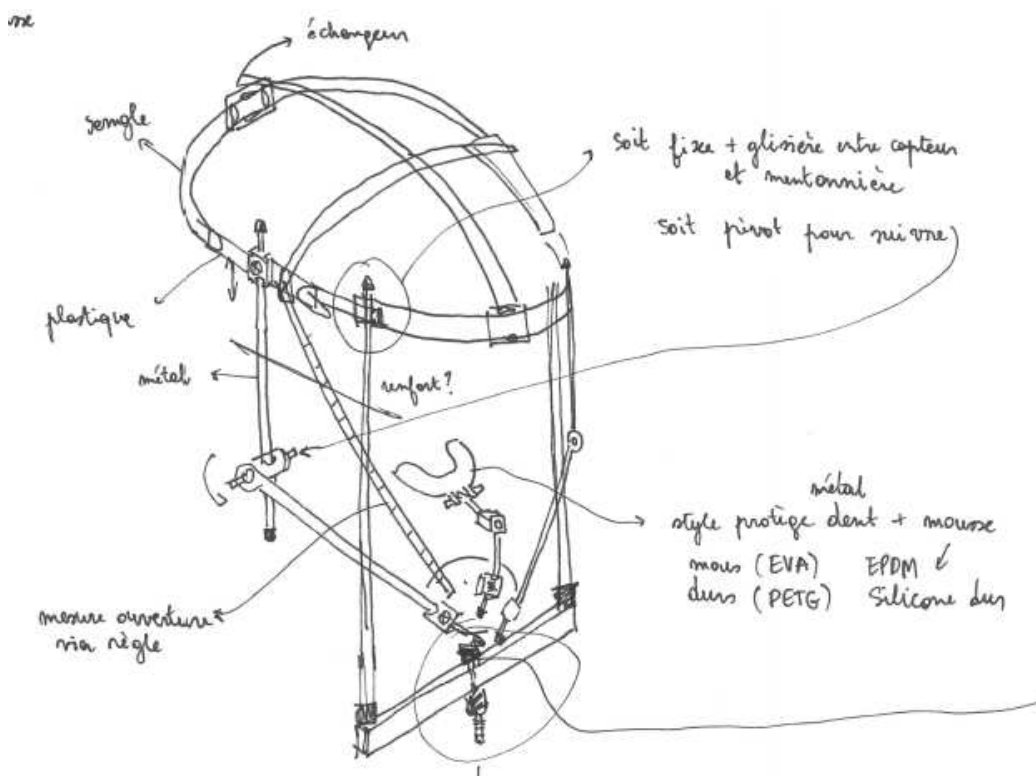 échangeur
sengle
soit fixe + glissière entre capteur
et mentonnière
soit pivot pour suivre
plastique
métal
renfort?
métal
style protège dent + mousse
mous (EVA) EPDM
durs (PETG) Silicone dur
mesure ouverture
via règle